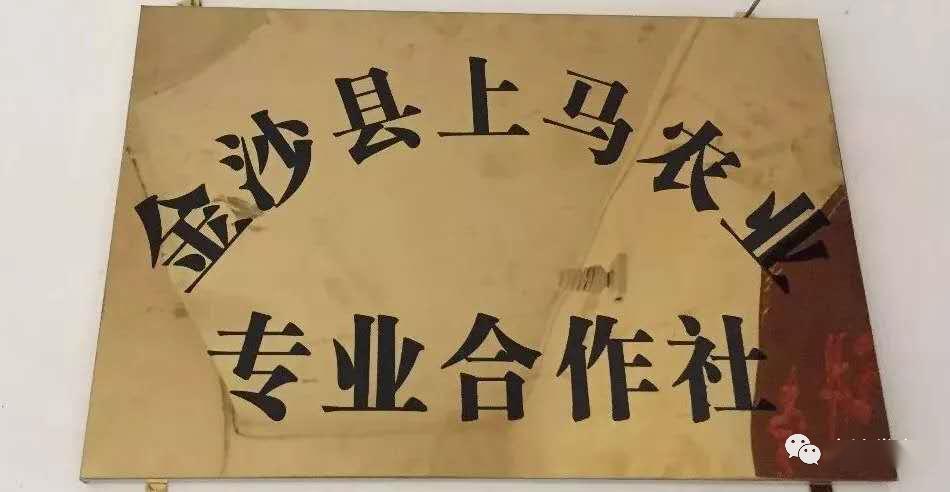 金沙县上马农业
专业合作社